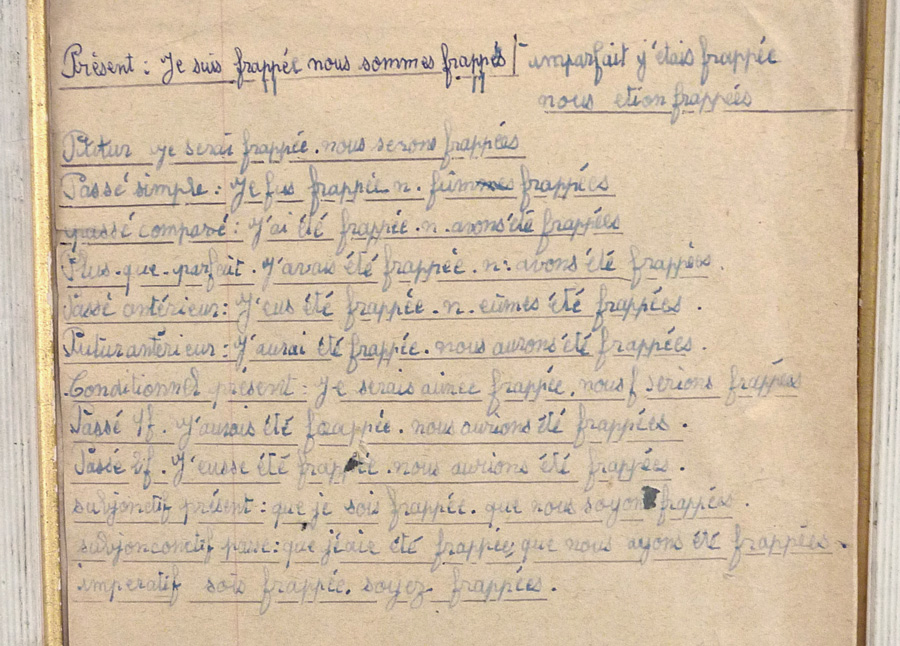 Présent : Je suis frappée nous sommes frappés / imparfait j'étais frappée
nous etion frappées
Futur je serai frappée. nous serons frappées
Passé simple : Je fus frappée n. fûmmes frappées
passé comparé : J'ai été frappée. n. avons été frappées
Plus-que-parfait. J'avais été frappée. n. avons été frappées.
Passé antérieur : J'eus été frappée. n. eûmes été frappées.
Futur antérieur : J'aurai été frappée. nous aurons été frappées.
Conditionnel présent : Je serais aimee frappée, nous serions frappées
Passé 1f. J'aurais été fraappée. nous aurions été frappées.
Passé 2f. J'eusse été frappée. nous aurions été frappées.
subjonctif présent : que je sois frappée. que nous soyons frappées.
subjonconctif passé : que j'éaie été frappée, que nous ayons été frappées.
imperatif sois frappée. soyez frappées.